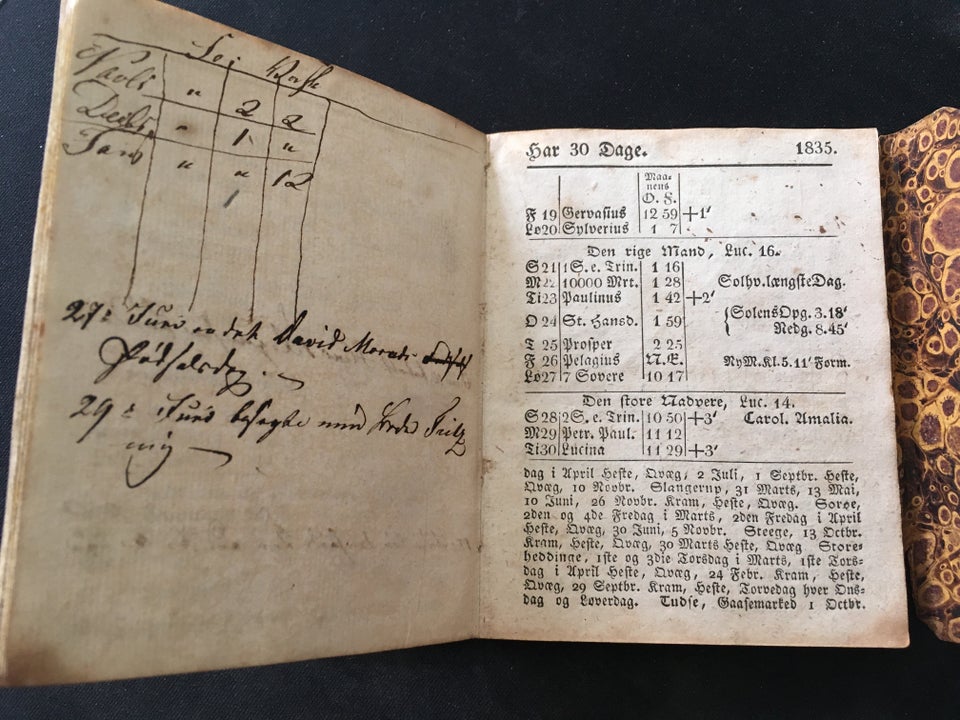 " 2 2
" 1 "
" " 12
1
27 Juni er det David
Fødselsdag.
29 Juni besøgte min Fritz
mig
Har 30 Dage. 1835.
Maa-
nens
O. S.
F 19 Gervasius 12 59 +1'
Lø20 Sylverius 1 7
Den rige Mand, Luc. 16.
S21 1S. e. Trin. 1 16
M22 10000 Mrt. 1 28 Solhv. længste Dag.
Ti23 Paulinus 1 42 +2'
O 24 St. Hansd. 1 59 {Solens Opg. 3.18'
Nedg. 8.45'
T 25 Prosper 2 25
F 26 Pelagius N. E. Ny M. Kl. 5. 11' Form.
Lø27 7 Sovere 10 17
Den store Nadvere, Luc. 14.
S28 2S. e. Trin. 10 50 +3' Carol. Amalia.
M29 Petr. Paul. 11 12
Ti30 Lucina 11 29 +3'
dag i April Heste, Qvæg, 2 Juli, 1 Septbr. Heste,
Qvæg, 10 Novbr. Slangerup, 31 Marts, 13 Mai,
10 Juni, 26 Novbr. Kram, Heste, Qvæg. Sorøe,
2den og 4de Fredag i Marts, 2den Fredag i April
Heste, Qvæg, 30 Juni, 5 Novbr. Steege, 13 Octbr.
Kram, Heste, Qvæg, 30 Marts Heste, Qvæg Store-
heddinge, 1ste og 3die Torsdag i Marts, 1ste Tors-
dag i April Heste, Qvæg, 24 Febr. Kram, Heste,
Qvæg, 29 Septbr. Kram, Heste, Torvedag hver Ons-
dag og Løverdag. Tudse, Gaasemarked 1 Octbr.